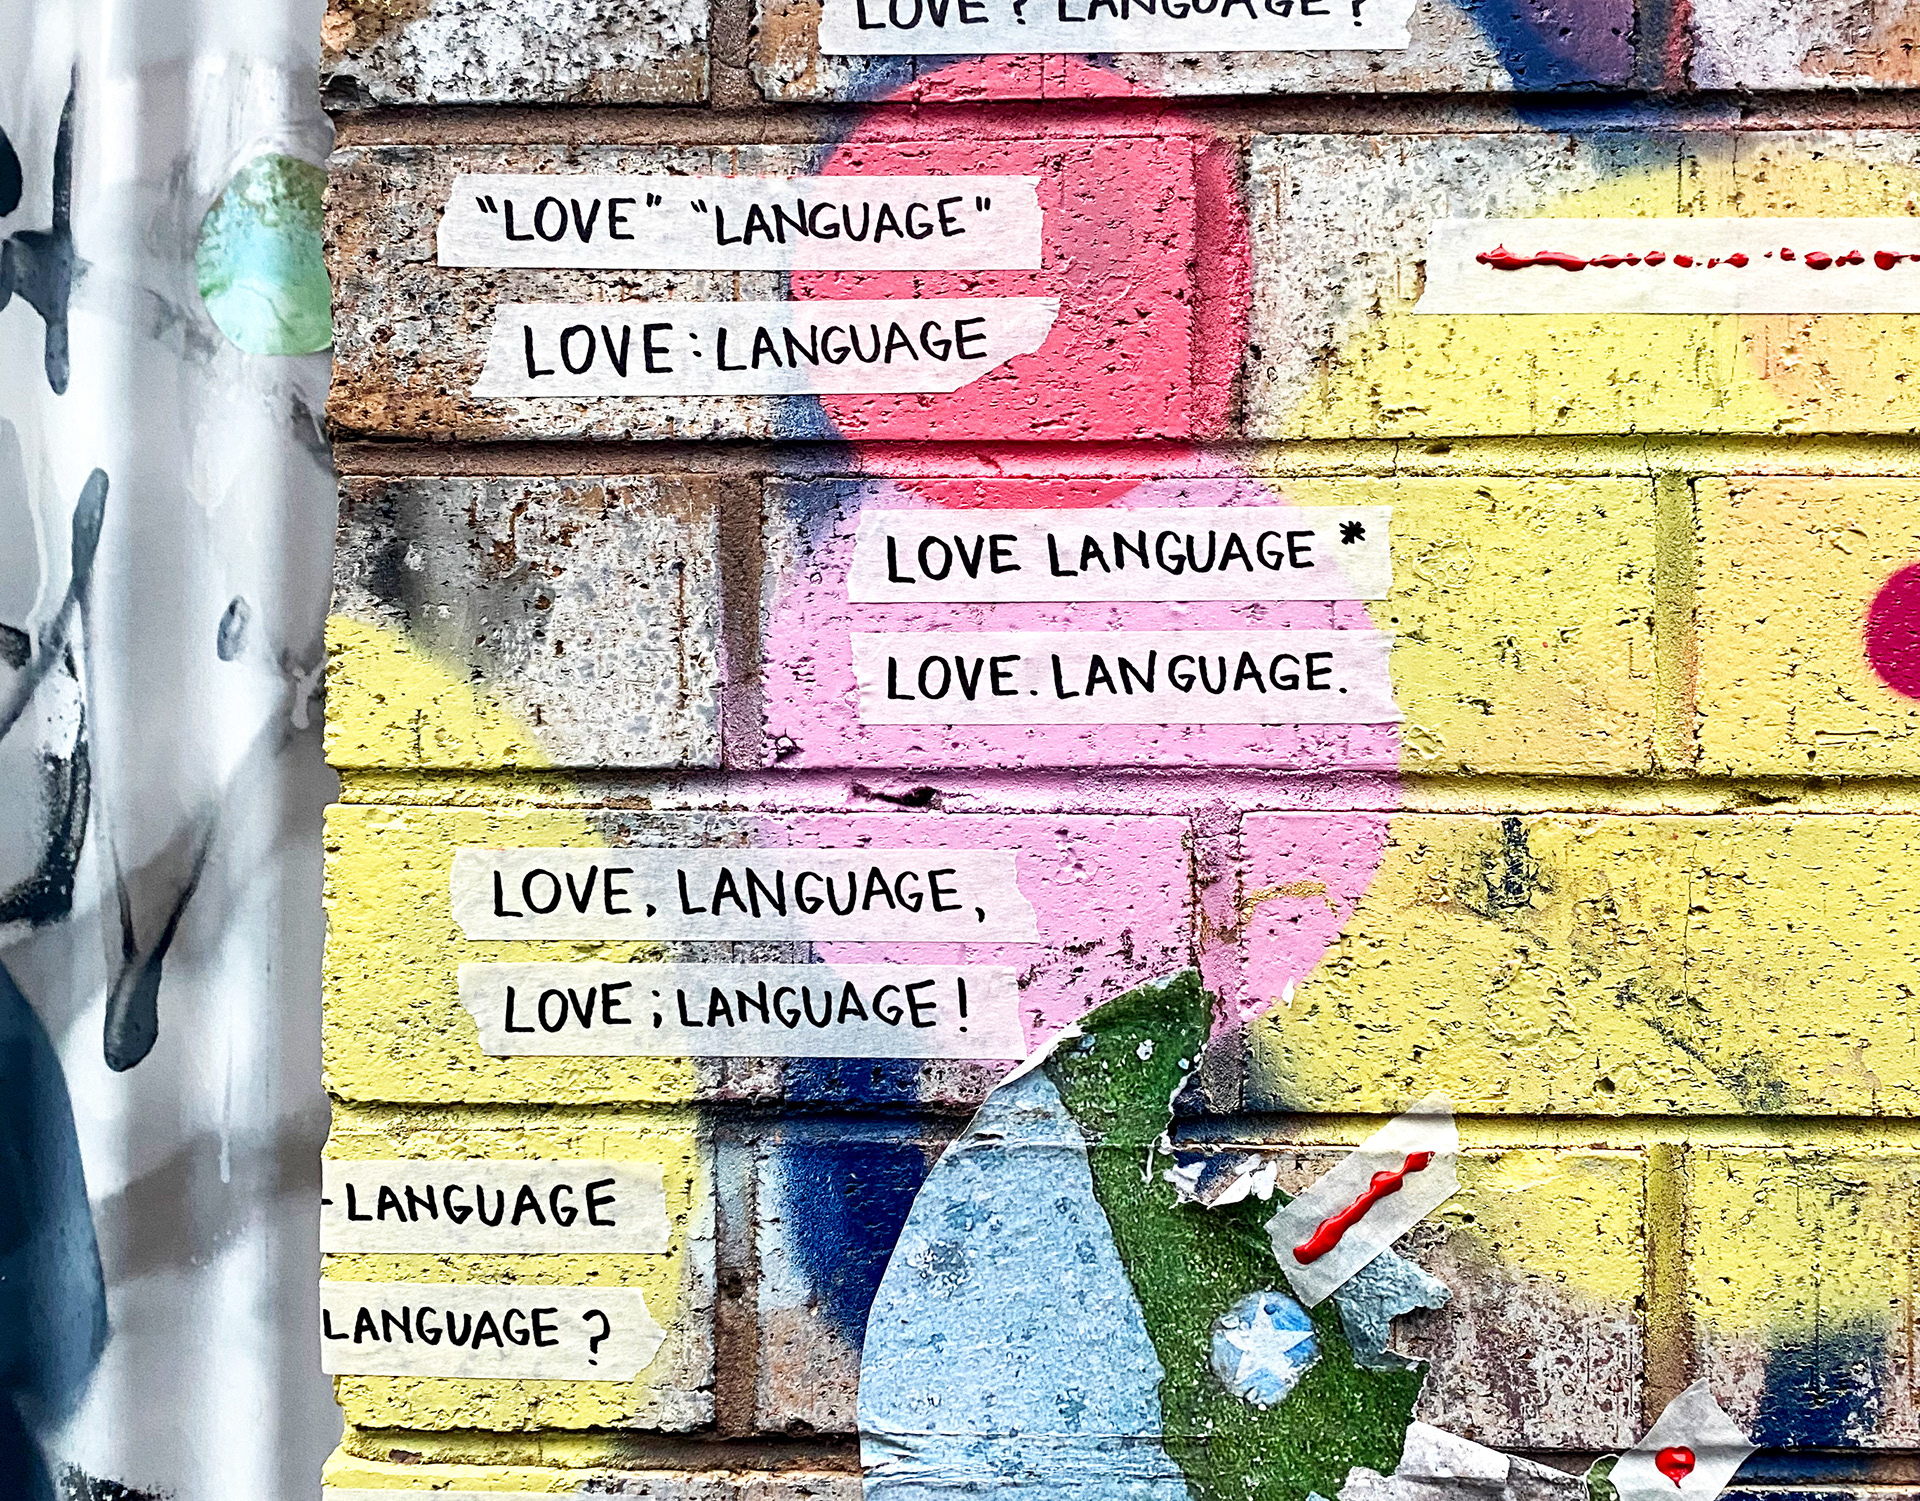 LOVE? LANGUAGE?
"LOVE" "LANGUAGE"
LOVE:LANGUAGE
LOVE LANGUAGE*
LOVE. LANGUAGE.
LOVE, LANGUAGE,
LOVE;LANGUAGE!
-LANGUAGE
LANGUAGE?